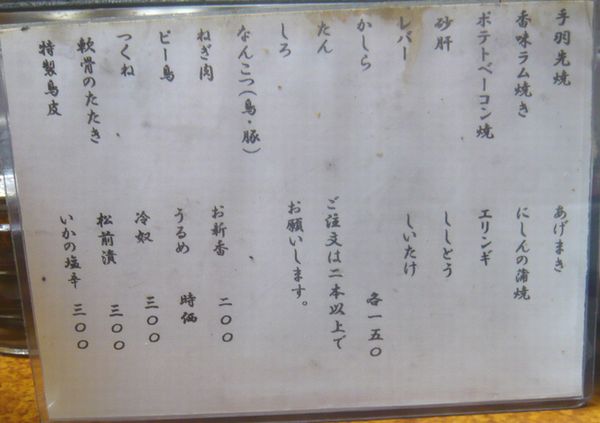 手羽先焼
香味ラム焼き
ポテトベーコン焼
砂肝
レバー
かしら
たん
しろ
なんこつ(鳥・豚)
ねぎ肉
ピー鳥
つくね
軟骨のたたき
特製鳥皮
あげまき
にしんの蒲焼
エリンギ
ししとう
しいたけ
各一五〇
ご注文は二本以上で
お願いします。
お新香 二〇〇
うるめ 時価
冷奴 三〇〇
松前漬 三〇〇
いかの塩辛 三〇〇